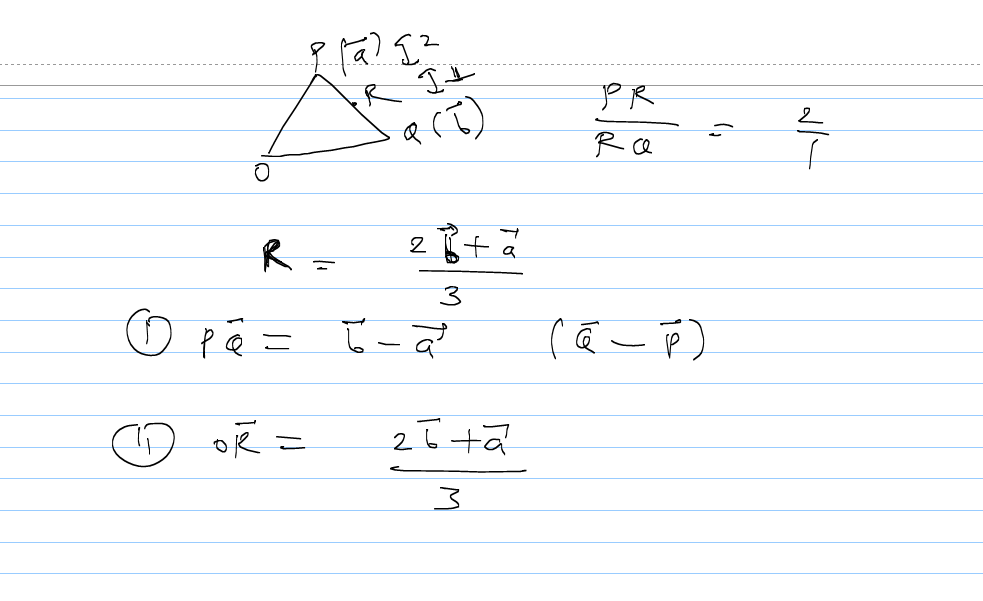 P (a⃗) I 2
R I 1
Q (b⃗)
O
PR / RQ = 2 / 1
R = (2b⃗ + a⃗) / 3
(I) PQ⃗ = b⃗ − a⃗ (Q⃗ − P⃗)
(II) OR⃗ = (2b⃗ + a⃗) / 3